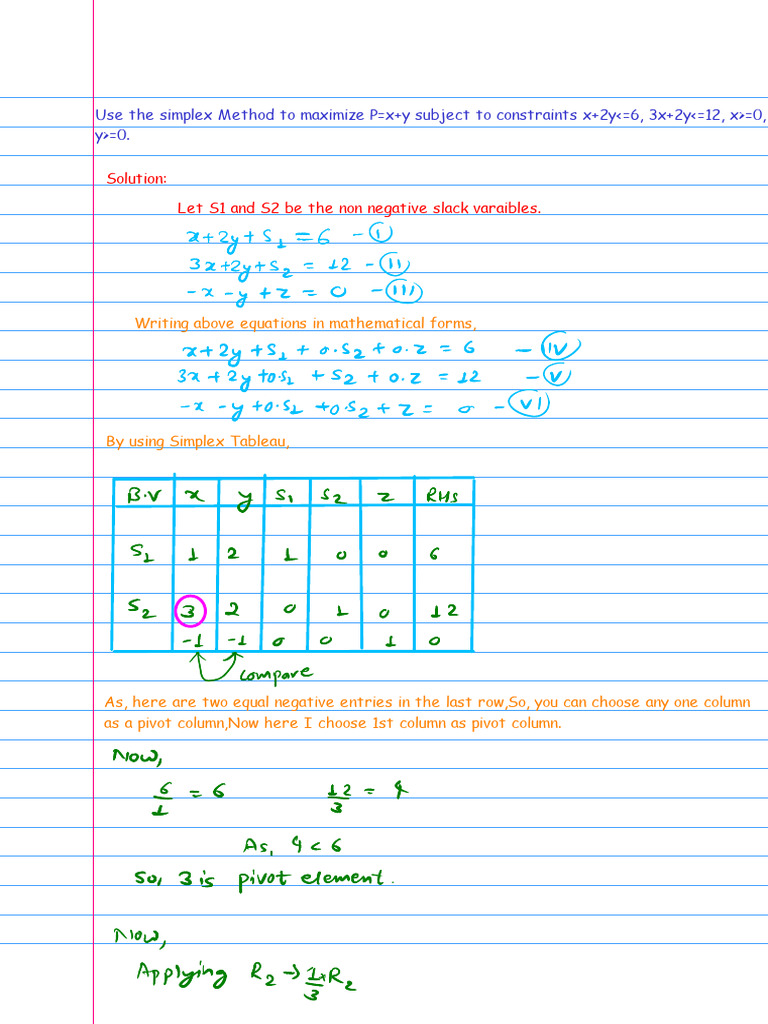 Use the simplex Method to maximize P=x+y subject to constraints x+2y<=6, 3x+2y<=12, x>=0,
y>=0.
Solution:
Let S1 and S2 be the non negative slack varaibles.
x+2y+S₁ = 6 - (I)
3x+2y+S₂ = 12 - (II)
-x-y+z = 0 - (III)
Writing above equations in mathematical forms,
x+2y+S₁ + 0.S₂ + 0.z = 6 - (IV)
3x + 2y +0.S₁ + S₂ + 0.z = 12 - (V)
-x -y +0.S₁ +0.S₂ + z = 0 - (VI)
By using Simplex Tableau,
B.V x y S₁ S₂ z RHS
S₁ 1 2 1 0 0 6
S₂ 3 2 0 1 0 12
-1 -1 0 0 1 0
compare
As, here are two equal negative entries in the last row,So, you can choose any one column
as a pivot column,Now here I choose 1st column as pivot column.
Now,
6/1 = 6 12/3 = 4
As, 4 < 6
So, 3 is pivot element.
Now,
Applying R₂ → 1/3 × R₂